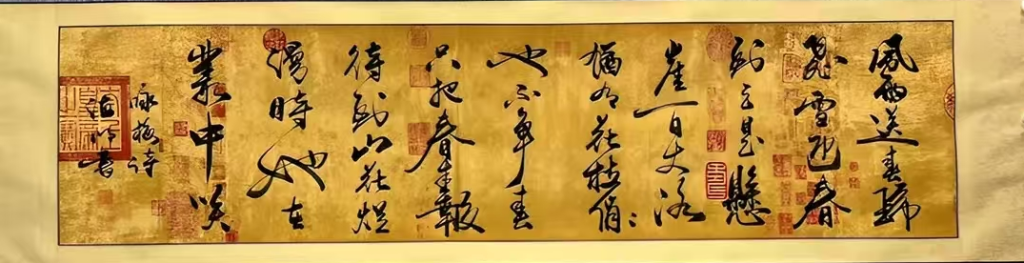 風雨送春歸
飛雪迎春
到已是懸
崖百丈冰
猶有花枝俏〻
也不争春
只把春来報
待到山花爛
漫時她在
叢中笑
咏梅诗
书